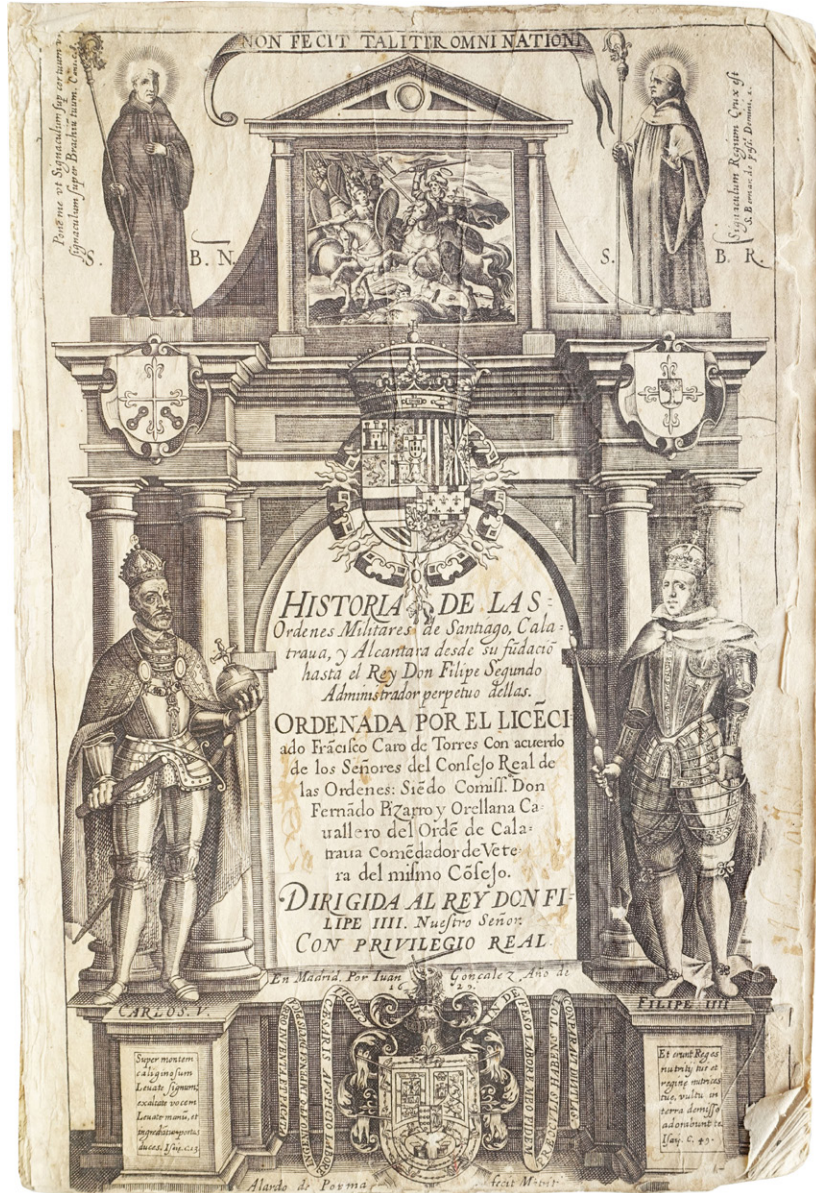 NON FECIT TALITER OMNI NATIONI
Pone me vt Signaculum sup cor tuum vt
signaculum super Brachiū tuum.
Signaculum Regium Crux est
S. Bernar. de Pass. Domini,
S. B. N.
S. B. R.
HISTORIA DE LAS
Ordenes Militares de Santiago, Cala=
traua, y Alcantara desde su fūdaciō
hasta el Rey Don Filipe Segundo
Administrador perpetuo dellas.
ORDENADA POR EL LICĒCI
ado Frācisco Caro de Torres Con acuerdo
de los Señores del Consejo Real de
las Ordenes: Siēdo Comiss. Don
Fernādo Pizarro y Orellana Ca=
uallero del Ordē de Cala=
traua Comēdador de Vete=
ra del mismo Cōsejo.
DIRIGIDA AL REY DON FI=
LIPE IIII. Nuestro Señor.
CON PRIVILEGIO REAL
En Madrid. Por Iuan Gonçalez Año de
1629.
CARLOS. V.
FILIPE IIII
Super montem
caliginosum
Leuate signum,
exaltate vocem
Leuate manū, et
ingrediātur portas
duces. Isaÿ. c. 13
CÆSARIS AVSPICIO LABORE
Et erunt Reges
nutritij tui et
regine nutrices
tue, vultu in
terra demisso
adorabunt te.
Isaÿ. C. 49.
Alardo de Popma fecit Matriti